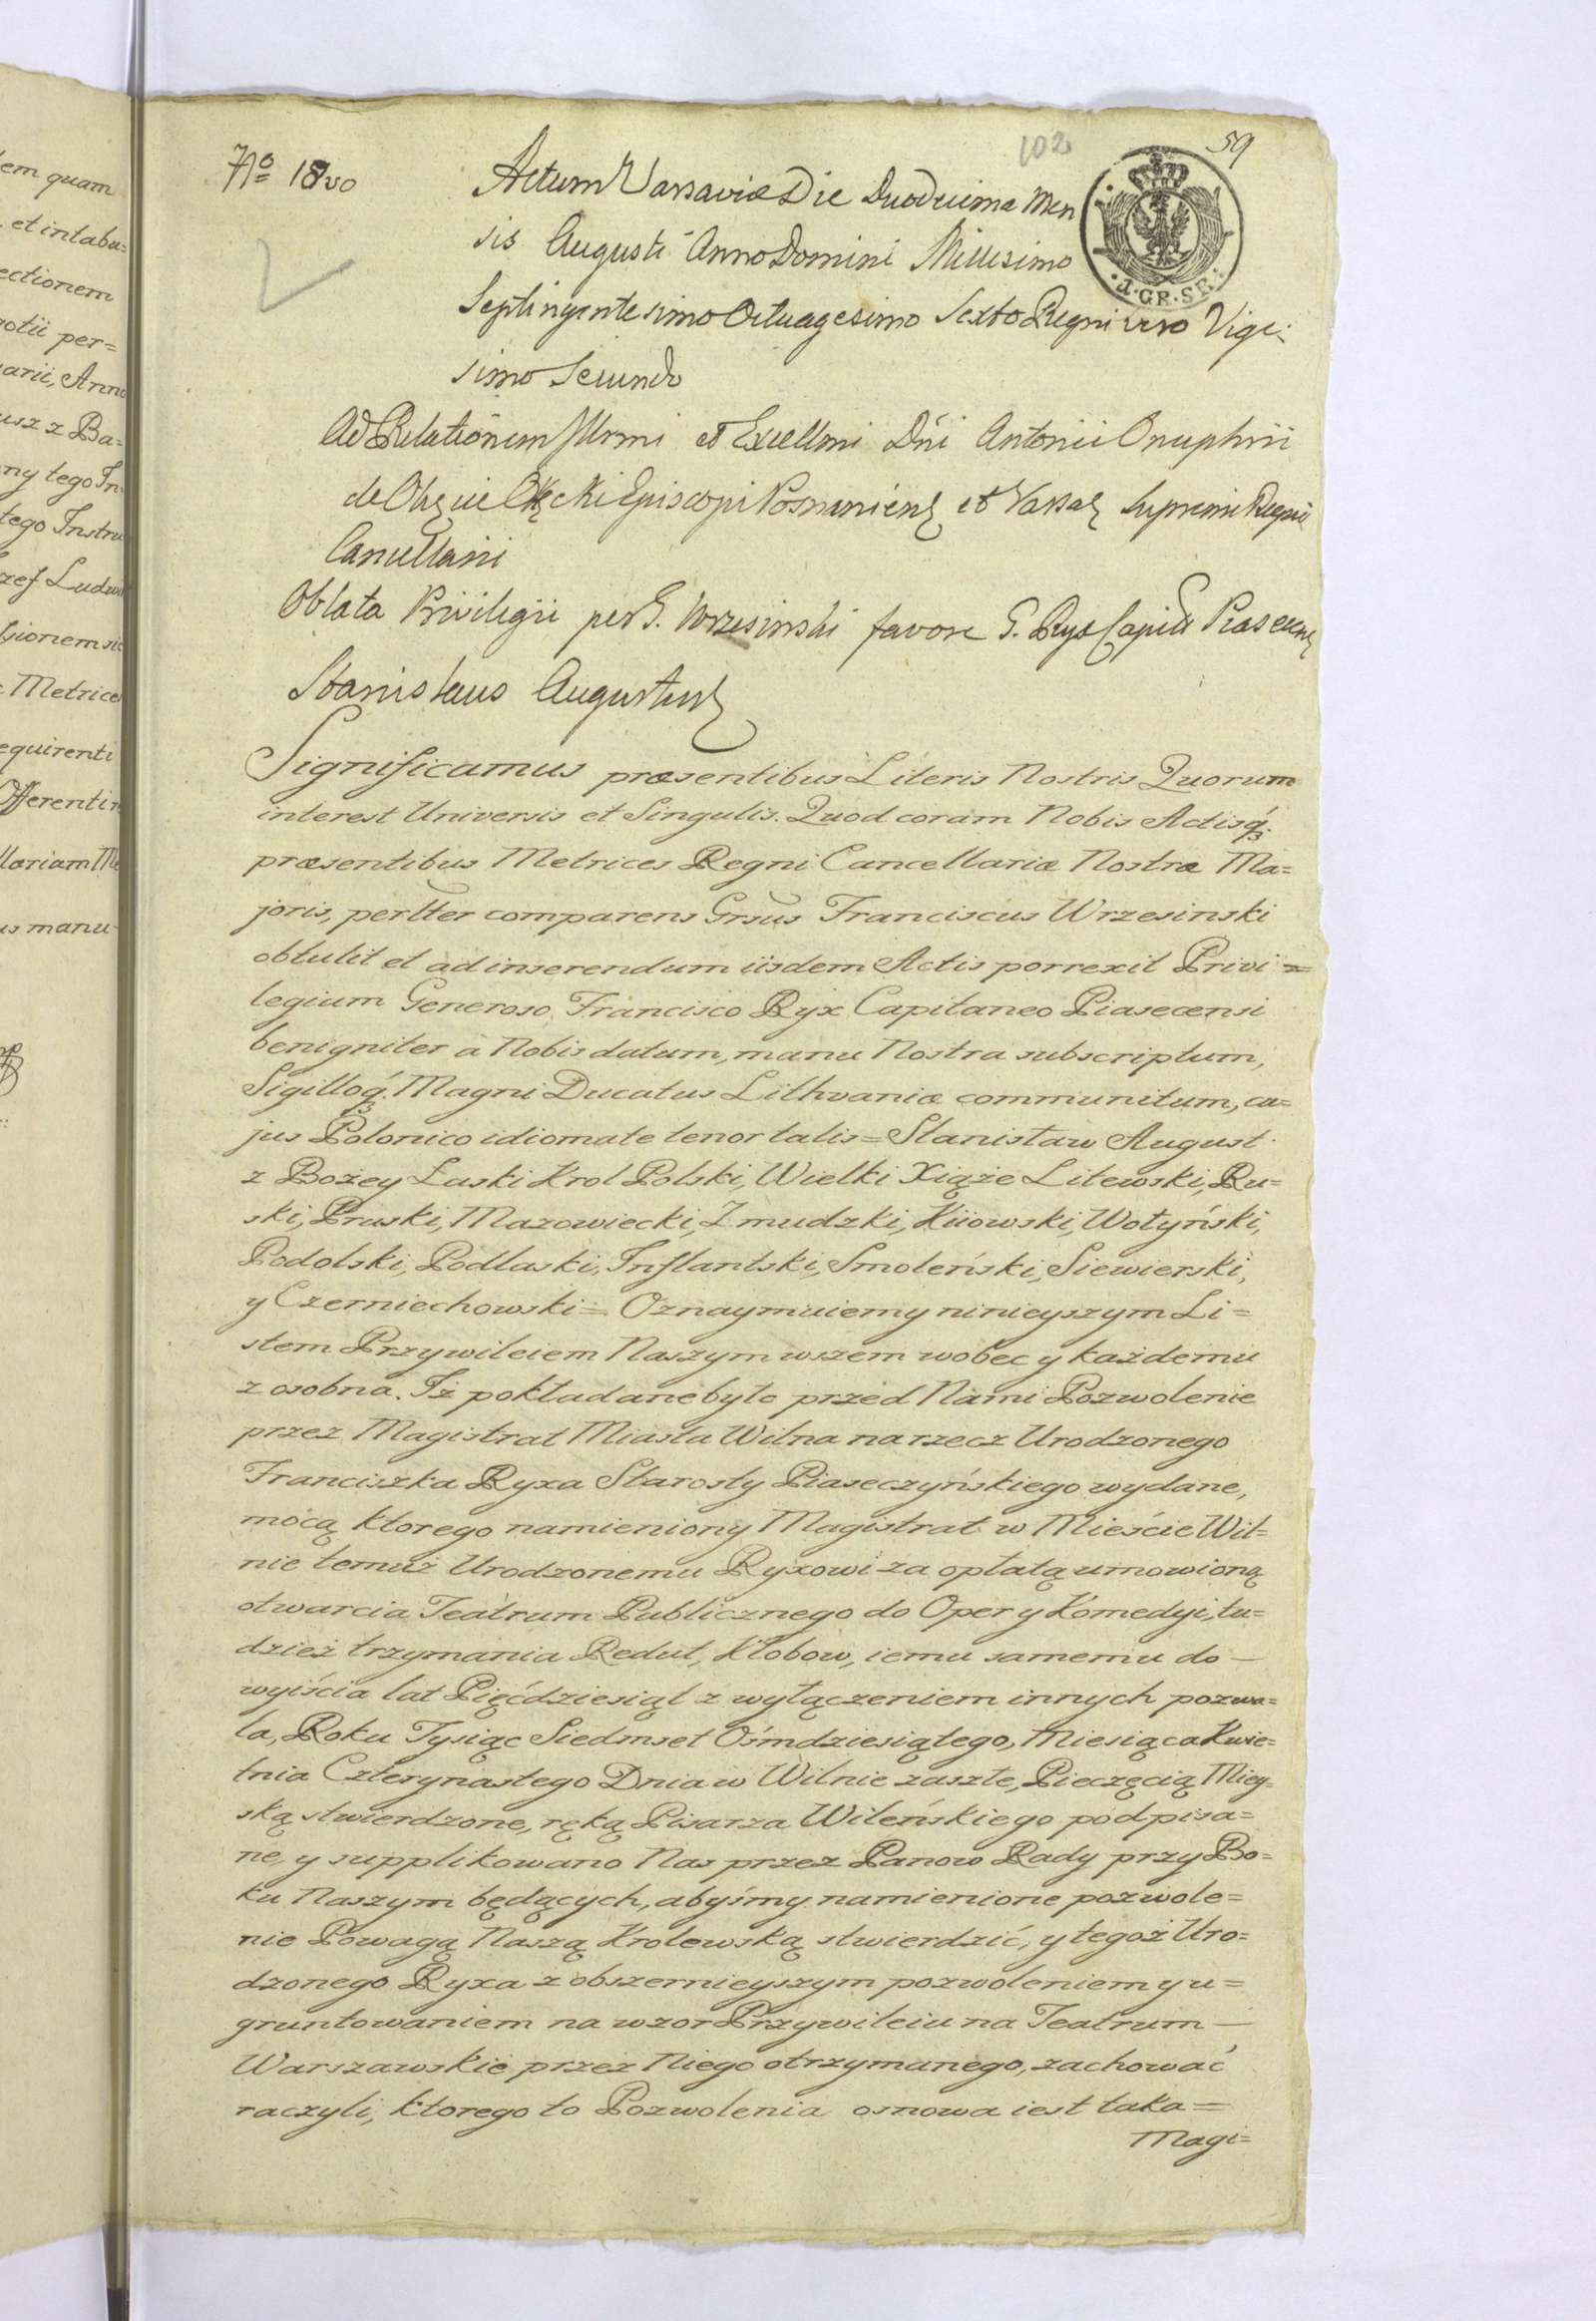 em quam
et intabu=
ectionem
otii per=
arii, Anno
usz z Ba=
ny tego In
tego Instru
zef Ludw
sionem
Metrice
equirenti
Offerenti
lariam M
s manu
102
59
No 18
A. GR. SR.
Actum Varsaviæ Die Duodecima Men
sis Augusti Anno Domini Millesimo
Septingentesimo Octuagesimo Sexto Regni vero Vige=
simo Secundo
Ad Relationem Illrmi et Excellmi Dni Antonii Onuphrii
de Okęcie Okęcki Episcopi Posnaniens et Varsa Supremi Regni
Cancellarii
Oblata Privilegii per G. Wrzesinski favore G. Ryx Capit Piasecens
Stanislaus Augustus
Significamus præsentibus Literis Nostris Quorum
interest Universis et Singulis. Quod coram Nobis Actisq́;
præsentibus Metrices Regni Cancellariæ Nostræ Ma=
joris, perltter comparens Grsus Franciscus Wrzesinski
obtulit et ad inserendum iisdem Actis porrexit Privi=
legium Generoso Francisco Ryx Capitaneo Piasecensi
benigniter a Nobis datum, manu Nostra subscriptum,
Sigilloq́; Magni Ducatus Lithvaniæ communitum, cu=
jus Polonico idiomate tenor talis = Stanisław August
z Bożey Łaski Krol Polski, Wielki Xiąże Litewski, Ru=
ski, Pruski, Mazowiecki, Zmudzki, Kiiowski, Wołyński,
Podolski, Podlaski, Inflantski, Smoleński, Siewierski,
y Czerniechowski = Oznaymuiemy ninieyszym Li=
stem Przywileiem Naszym wszem wobec y każdemu
z osobna. Iż pokładane było przed Nami Pozwolenie
przez Magistrat Miasta Wilna na rzecz Urodzonego
Franciszka Ryxa Starosty Piaseczyńskiego wydane,
mocą ktorego namieniony Magistrat w Mieście Wil=
nie temuż Urodzonemu Ryxowi za opłatą umowioną
otwarcia Teatrum Publicznego do Oper y Komedyi, tu=
dzież trzymania Redut, Kłobow, iemu samemu do —
wyiścia lat Pięćdziesiąt z wyłączeniem innych pozwa=
la, Roku Tysiąc Siedmset Ośmdziesiątego, Miesiąca Kwie=
tnia Czterynastego Dnia w Wilnie zaszłe, Pieczęcią Miey=
ską stwierdzone, ręką Pisarza Wileńskiego podpisa=
ne, y supplikowano Nas przez Panow Rady przy Bo=
ku Naszym będących, abyśmy namienione pozwole=
nie Powagą Naszą Krolewską stwierdzić, y tegoż Uro=
dzonego Ryxa z obszernieyszym pozwoleniem y u=
gruntowaniem na wzor Przywileiu na Teatrum —
Warszawskie przez Niego otrzymanego, zachować
raczyli, ktorego to Pozwolenia osnowa iest taka =
Magi=